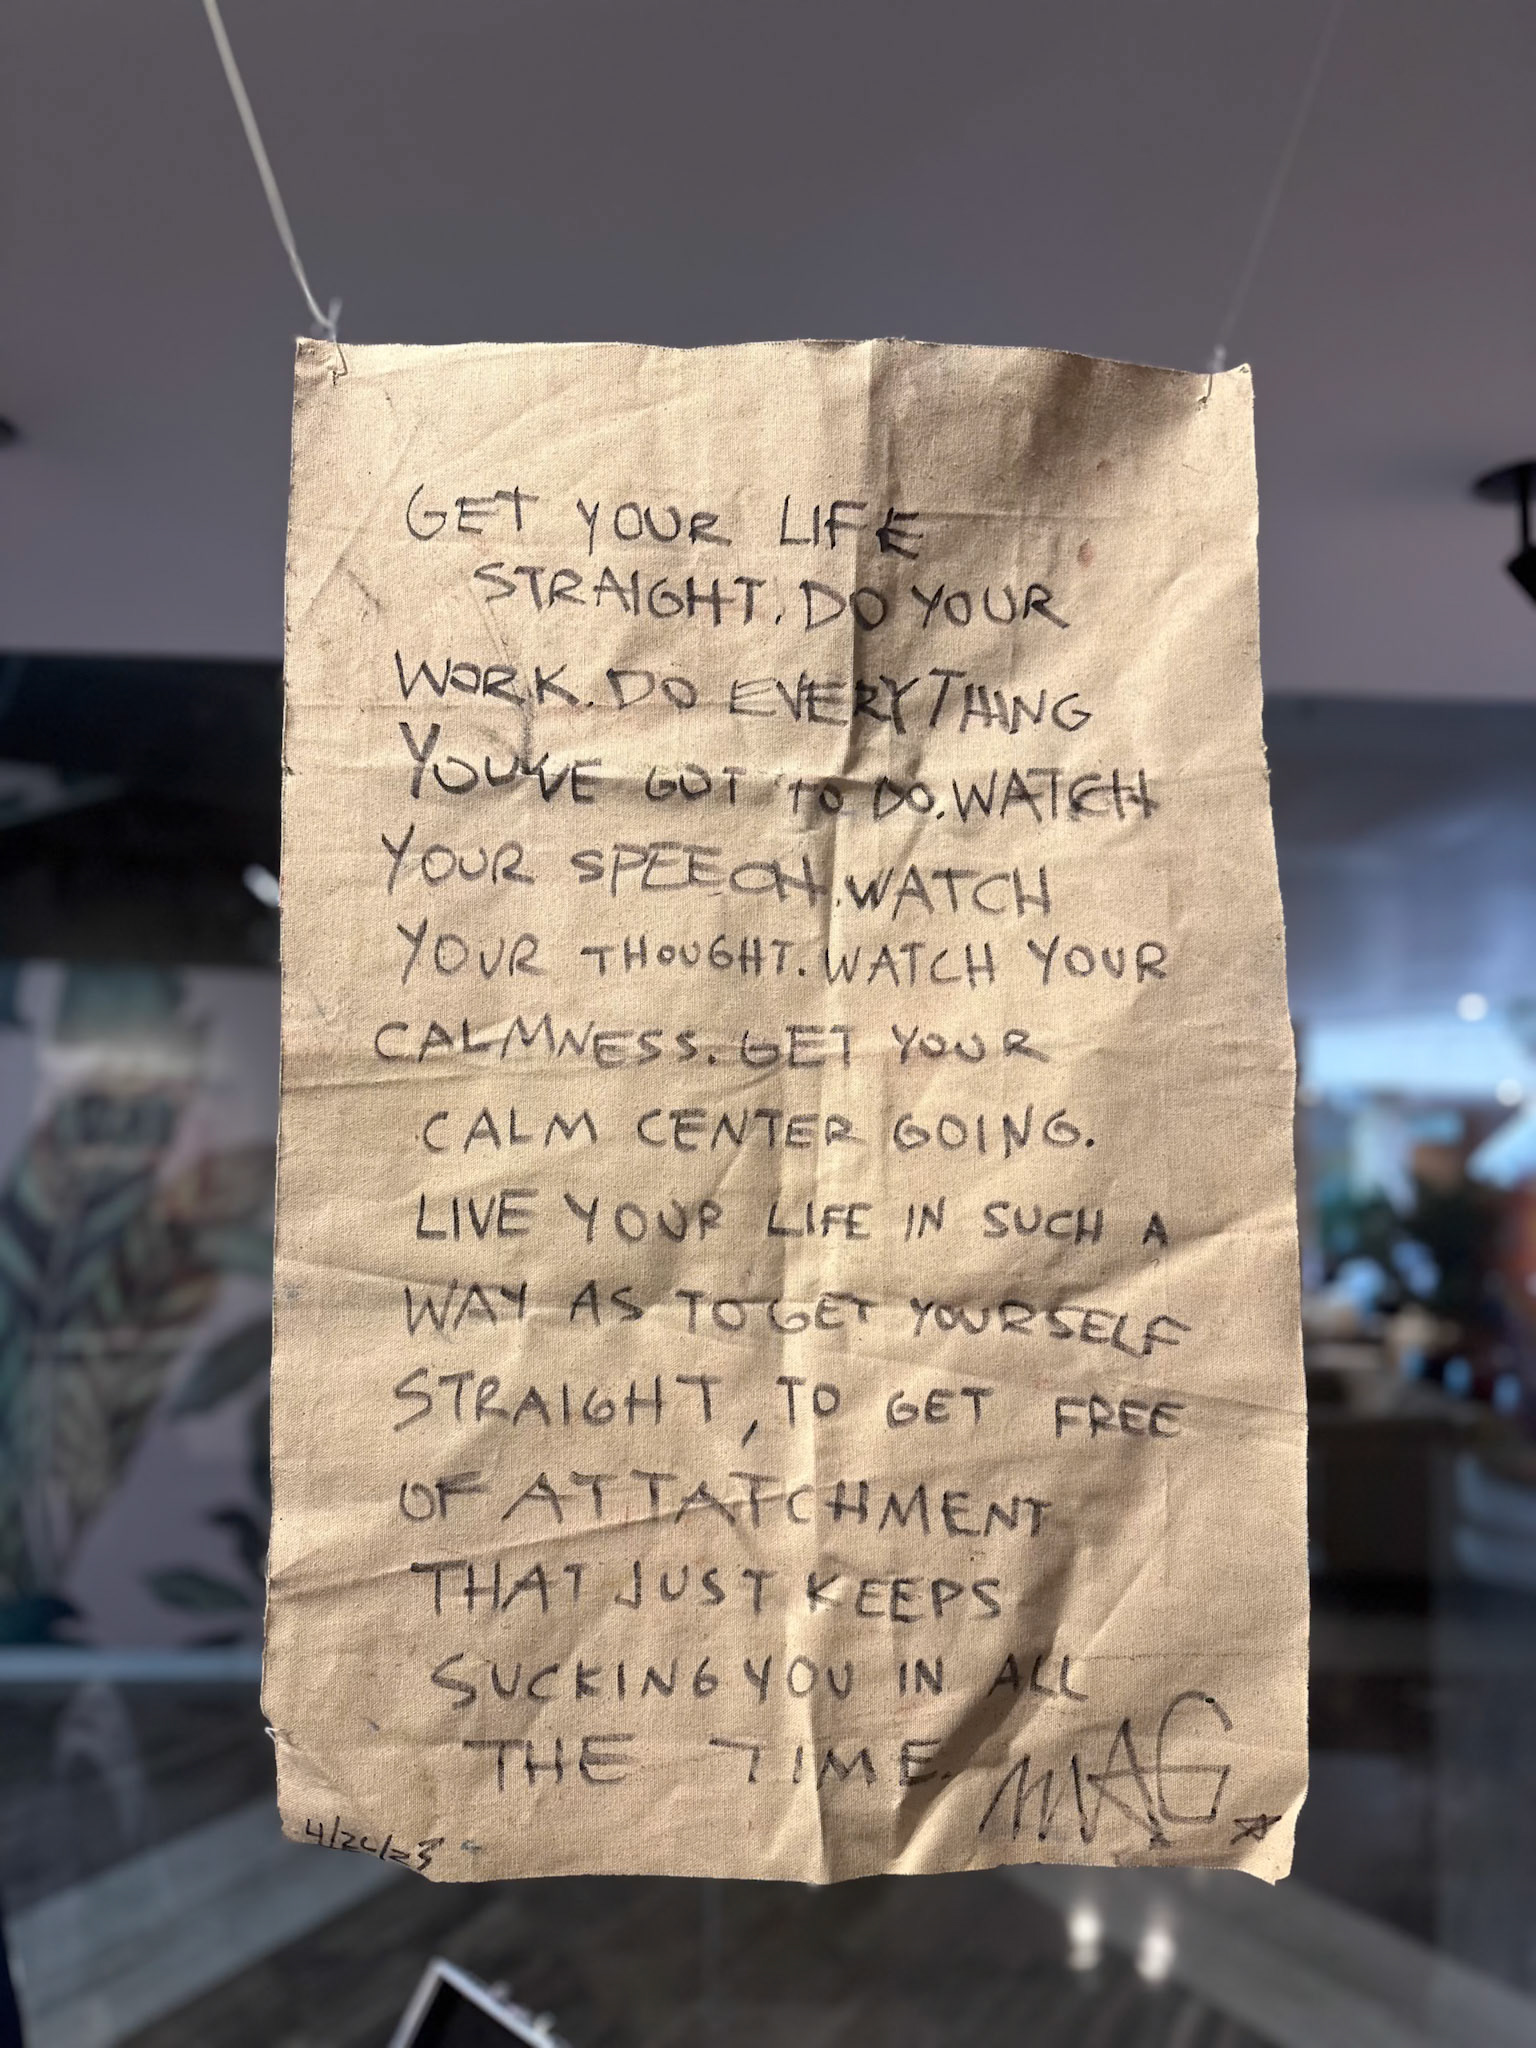 GET YOUR LIFE
STRAIGHT. DO YOUR
WORK. DO EVERYTHING
YOU'VE GOT TO DO. WATCH
YOUR SPEECH. WATCH
YOUR THOUGHT. WATCH YOUR
CALMNESS. GET YOUR
CALM CENTER GOING.
LIVE YOUR LIFE IN SUCH A
WAY AS TO GET YOURSELF
STRAIGHT, TO GET FREE
OF ATTATCHMENT
THAT JUST KEEPS
SUCKING YOU IN ALL
THE TIME.
MAG